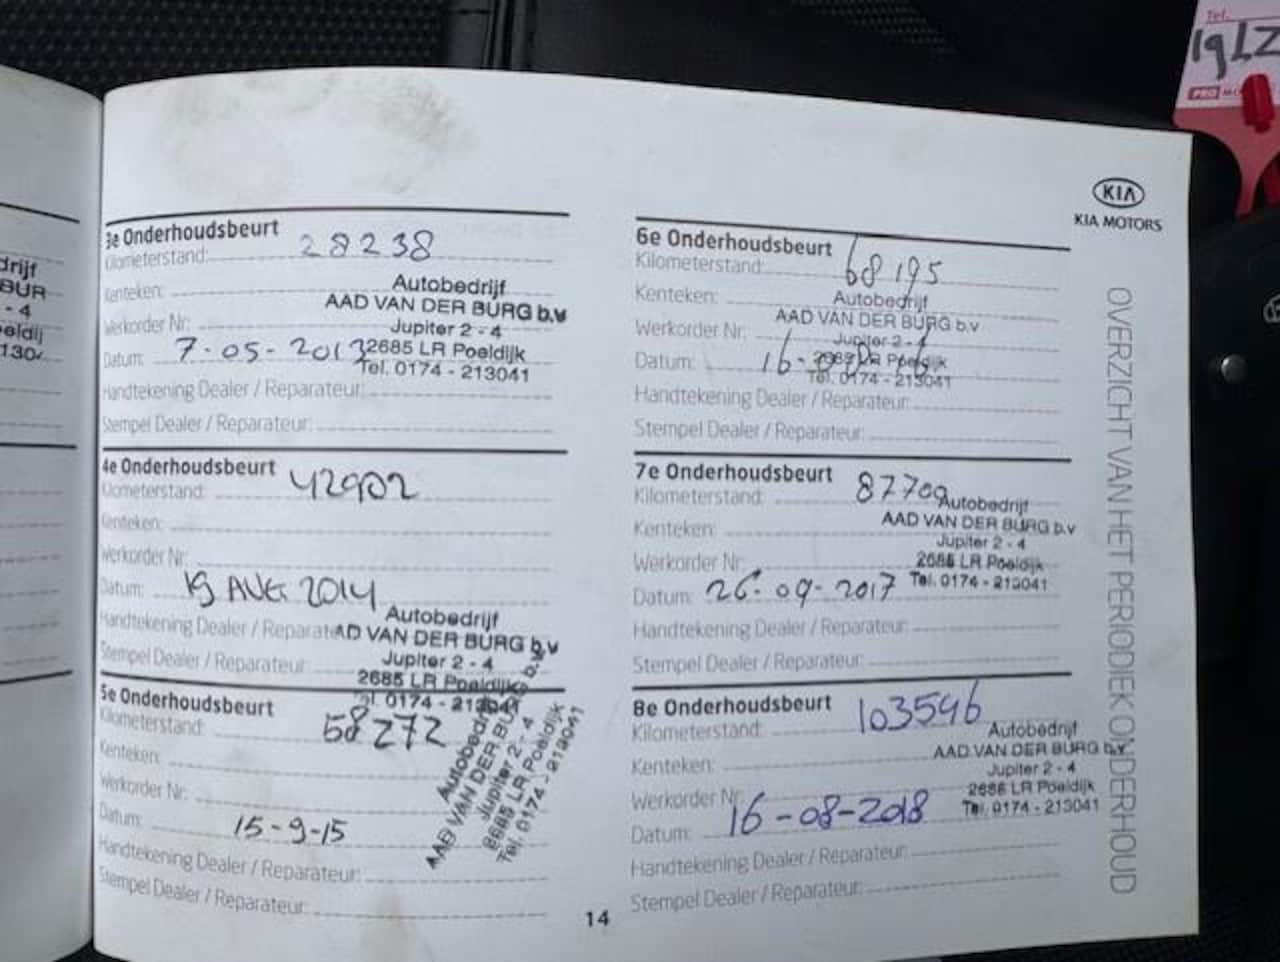 drijf
BUR
- 4
eldij
130
3e Onderhoudsbeurt
Kilometerstand: 28238
Kenteken:
Werkorder Nr:
Datum: 7-05-2013
Handtekening Dealer / Reparateur:
Stempel Dealer / Reparateur:
Autobedrijf
AAD VAN DER BURG b.v
Jupiter 2 - 4
2685 LR Poeldijk
Tel. 0174 - 213041
4e Onderhoudsbeurt
Kilometerstand: 42902
Kenteken:
Werkorder Nr:
Datum: 19 AUG 2014
Handtekening Dealer / Reparateur:
Stempel Dealer / Reparateur:
Autobedrijf
AAD VAN DER BURG b.v
Jupiter 2 - 4
2685 LR Poeldijk
Tel. 0174 - 213041
5e Onderhoudsbeurt
Kilometerstand: 58272
Kenteken:
Werkorder Nr:
Datum: 15-9-15
Handtekening Dealer / Reparateur:
Stempel Dealer / Reparateur:
Autobedrijf
AAD VAN DER BURG b.v
Jupiter 2 - 4
2685 LR Poeldijk
Tel. 0174 - 213041
14
6e Onderhoudsbeurt
Kilometerstand: 68195
Kenteken:
Werkorder Nr:
Datum: 16-
Handtekening Dealer / Reparateur:
Stempel Dealer / Reparateur:
Autobedrijf
AAD VAN DER BURG b.v
Jupiter 2 - 4
2685 LR Poeldijk
Tel. 0174 - 213041
7e Onderhoudsbeurt
Kilometerstand: 87709
Kenteken:
Werkorder Nr:
Datum: 26-09-2017
Handtekening Dealer / Reparateur:
Stempel Dealer / Reparateur:
Autobedrijf
AAD VAN DER BURG b.v
Jupiter 2 - 4
2685 LR Poeldijk
Tel. 0174 - 213041
8e Onderhoudsbeurt
Kilometerstand: 103546
Kenteken:
Werkorder Nr:
Datum: 16-08-2018
Handtekening Dealer / Reparateur:
Stempel Dealer / Reparateur:
Autobedrijf
AAD VAN DER BURG b.v
Jupiter 2 - 4
2685 LR Poeldijk
Tel. 0174 - 213041
KIA
KIA MOTORS
OVERZICHT VAN HET PERIODIEK ONDERHOUD
Tel.
PRO